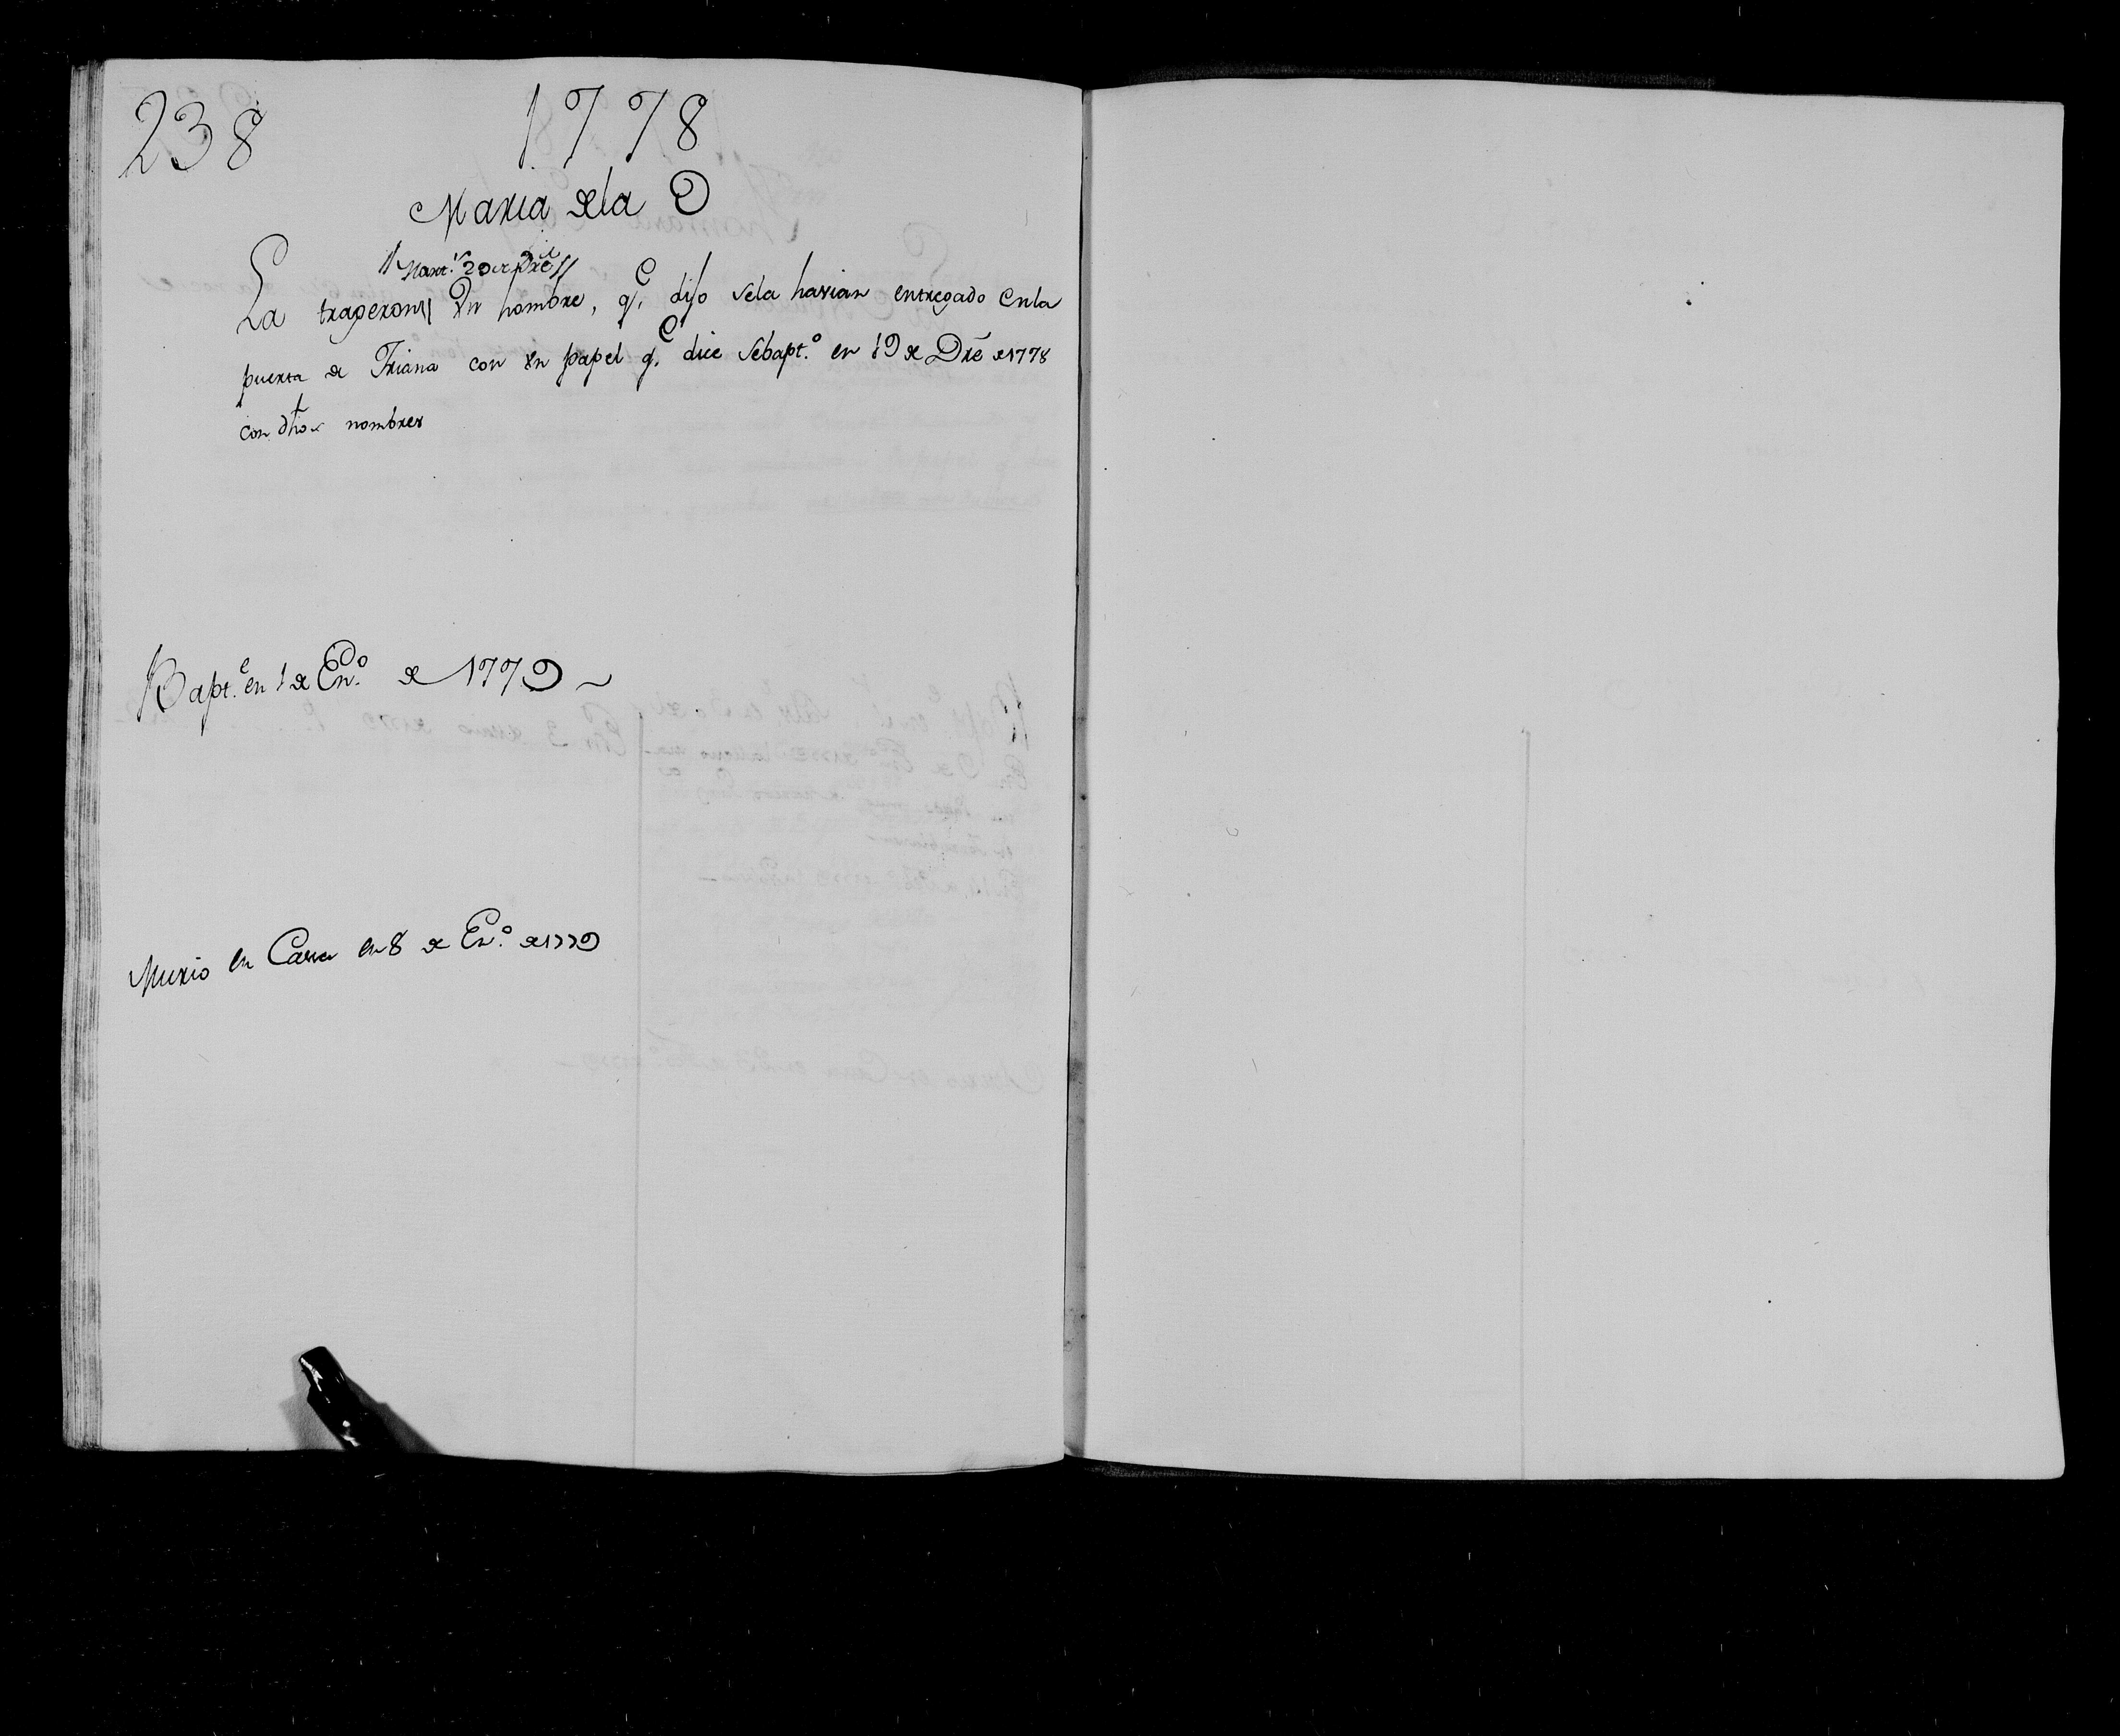 238 1778
Maria dela O
// Mart.s 29 de Dre //
La trageron // Un hombre, q.e dijo sela havian entregado enla
puerta de Triana con un papel q.e dice Sebapt.o en 19 de Dre de 1778
con dhos nombres
Bapt.e en 1 de En.o de 1779 ~
Murio en Casa en 8 de En.o de 1779